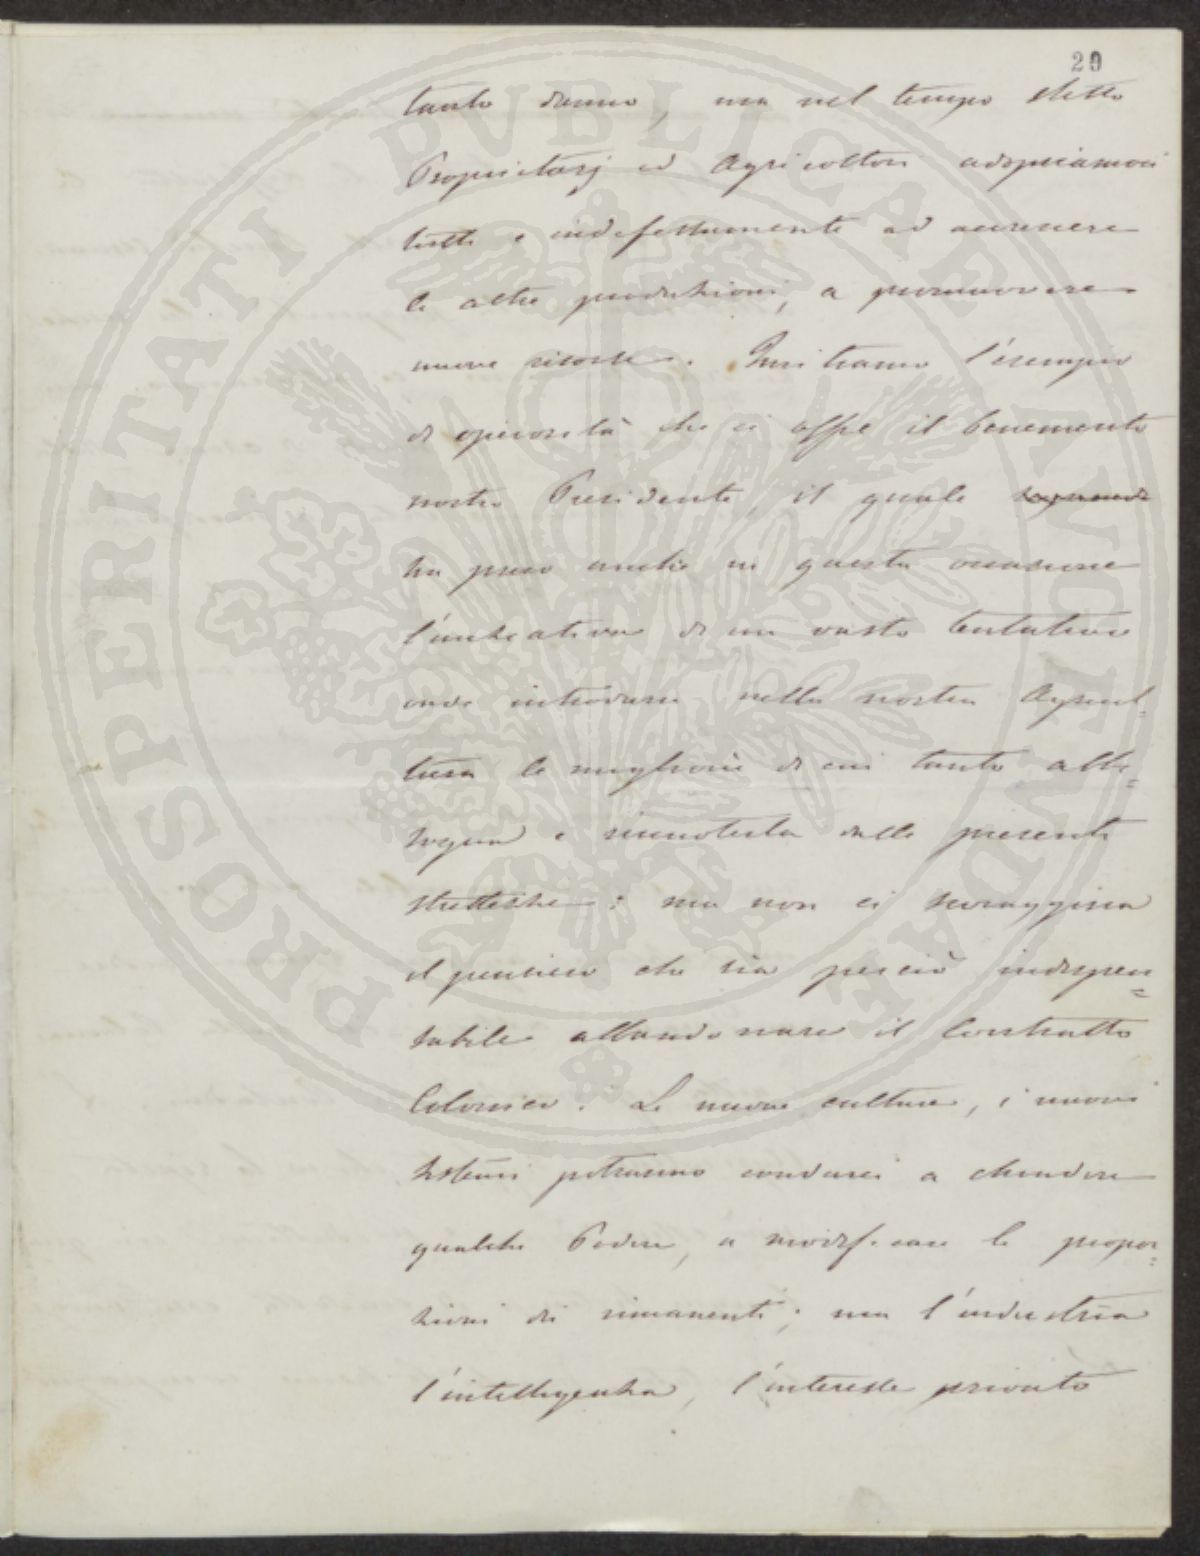 29
tanto danno, ma nel tempo stesso
Proprietarj ed Agricoltori adopriamoci
tutti e indefessamente ad accrescere
le altre produzioni, a promuovere
nuove risorse. Imitiamo l'esempio
di operosità che ci offre il benemerito
nostro Presidente, il quale
ha preso anche in questa occasione
l'iniziativa di un vasto tentativo
onde introdurre nella nostra Agricol-
tura le migliorie di cui tanto abbi=
sogna e riscuoterla dalle presenti
strettezze: ma non ci scoraggisca
il pensiero che sia perciò indispen=
sabile abbandonare il Contratto
Colonico. Le nuove culture, i nuovi
sistemi potranno condurci a chiudere
qualche Podere, a modificare le propor=
zioni di rimanenti; ma l'industria
l'intelligenza, l'interesse privato
PROSPERITATI PUBLICAE AUGENDAE